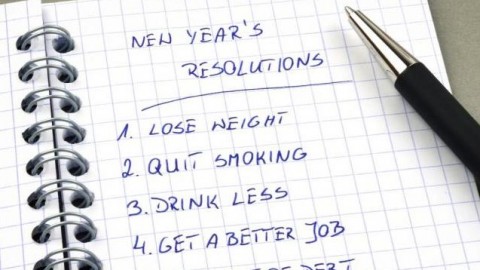 NEW YEAR'S
RESOLUTIONS
1. LOSE WEIGHT
2. QUIT SMOKING
3. DRINK LESS
4. GET A BETTER JOB
DEBT